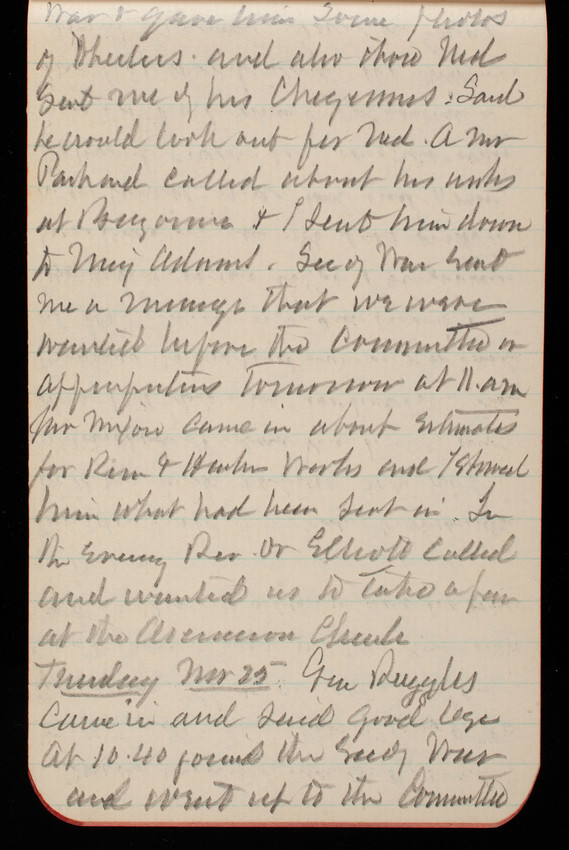 War & gave him some photos
of Wheelers and also those Ned
sent me of his Cheyennes. Said
he would look out for Ned. A Mr
Packard called about his
at & I sent him down
to Maj Adams. Sec of War sent
me a message that we were
wanted before the Committee on
appropriations tomorrow at 11. am
Mr Nixon came in about Estimates
for River & Harbor Works and I showed
him what had been sent in. In
the Evening Rev. Dr Elliott called
and wanted us to take a pew
at the Ascension Church
Tuesday Nov 25. Gen Ruggles
came in and said good bye
At 10.40 joined the Sec of War
and went up to the Committee